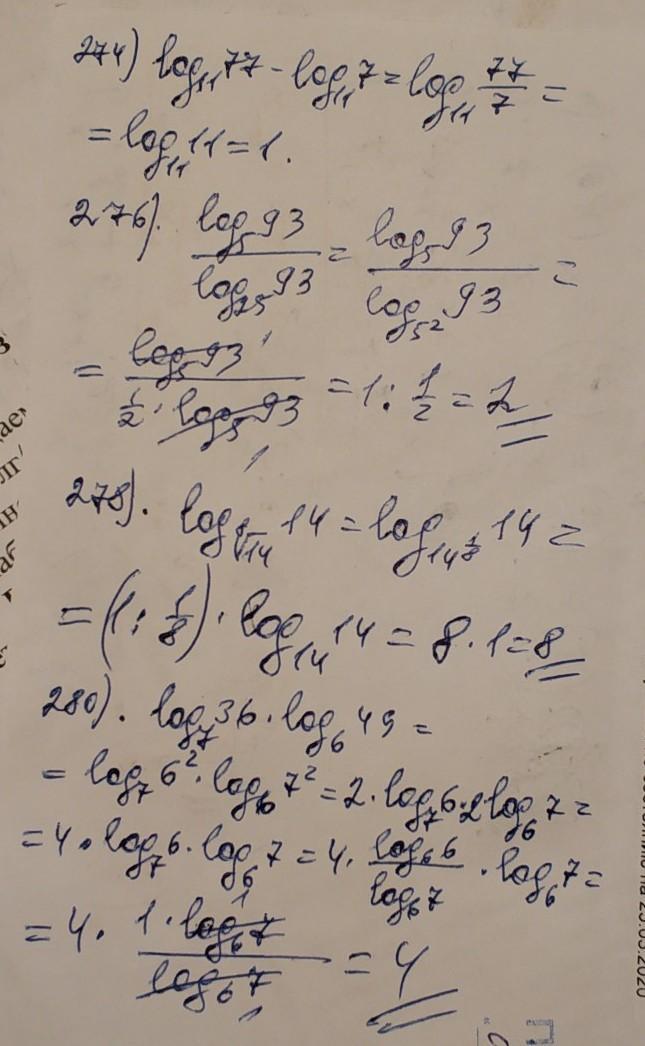 274) log₁₁77 - log₁₁7 = log₁₁ 77/7 =
= log₁₁11 = 1.
276). log₅93 / log₂₅93 = log₅93 / log₅²93 =
= log₅93 / 1/2 · log₅93 = 1 : 1/2 = 2
278). log ⁸√14 14 = log 14^1/8 14 =
= (1 : 1/8) · log₁₄14 = 8 · 1 = 8
280). log₇36 · log₆49 =
= log₇6² · log₆7² = 2 · log₇6 · 2log₆7 =
= 4 · log₇6 · log₆7 = 4 · log₆6 / log₆7 · log₆7 =
= 4 · 1 · log₆7 / log₆7 = 4
23.03.2020